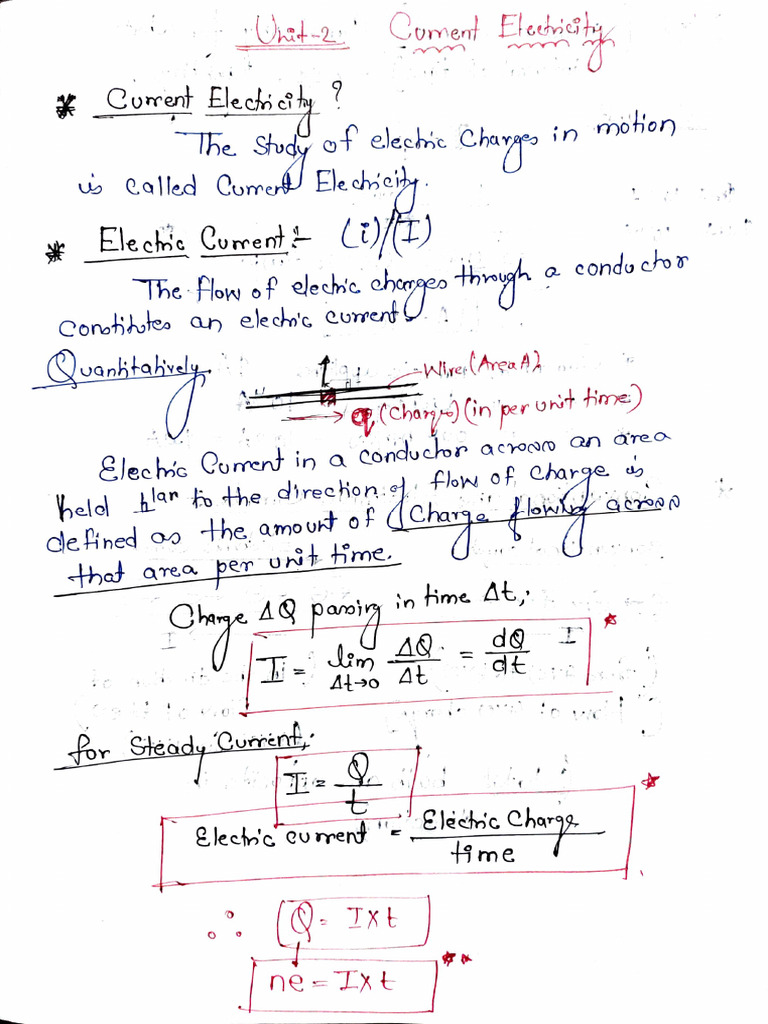 Unit-2 Current Electricity
* Current Electricity?
The study of electric Charges in motion
is called Current Electricity.
* Electric Current:- (i)/(I)
The flow of electric charges through a conductor
constitutes an electric current.
Quantitatively,
Wire (Area A)
q (Charge) (in per unit time)
Electric Current in a conductor across an area
held ⊥lar to the direction of flow of charge is
defined as the amount of Charge flowing across
that area per unit time.
Charge ΔQ passing in time Δt,
I = lim Δt→0 ΔQ/Δt = dQ/dt *
for Steady Current,
I = Q/t
Electric current = Electric Charge/time *
∴ Q = I×t
ne = I×t **